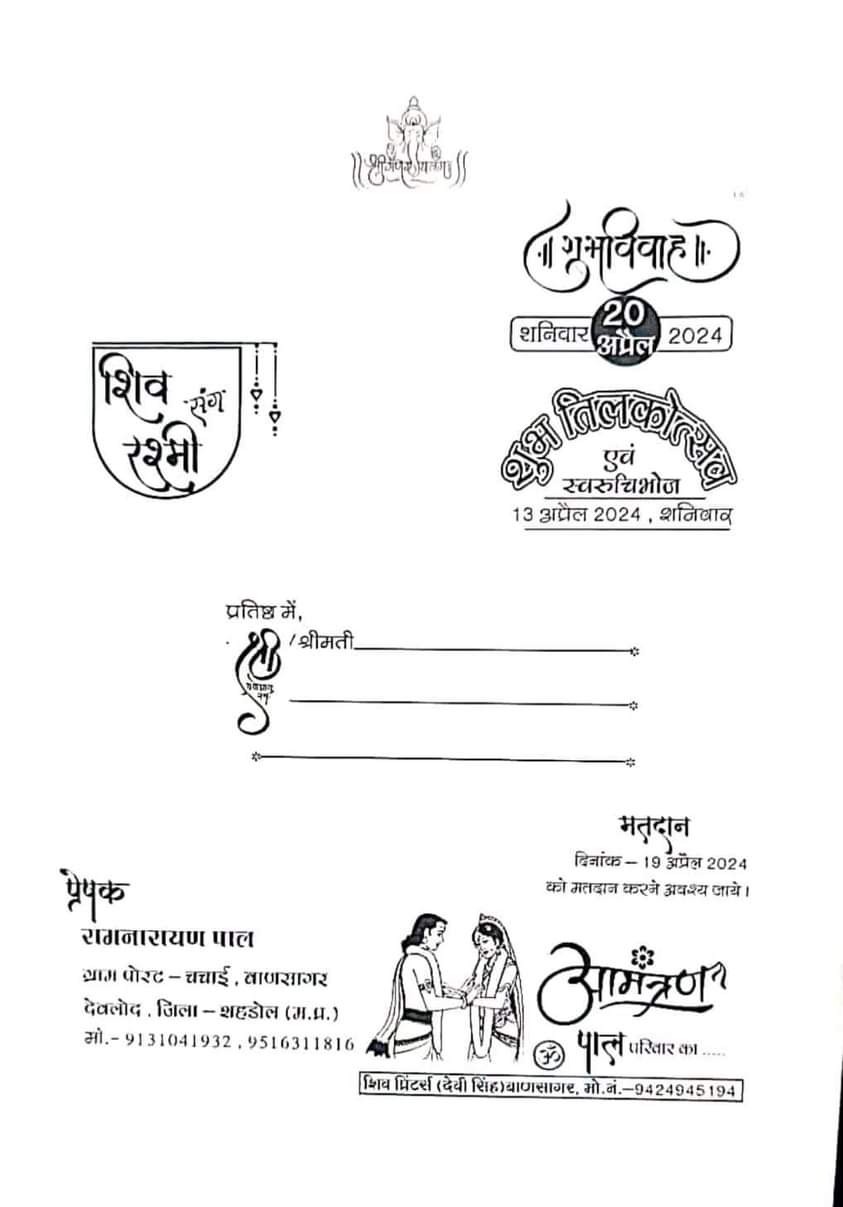 ॥ शुभविवाह ॥
शनिवार 20 अप्रैल 2024
शिव संग
रश्मी
शुभ तिलकोत्सव
एवं
स्वरुचिभोज
13 अप्रैल 2024 , शनिवार
प्रतिष्ठ में,
श्री /श्रीमती
मतदान
दिनांक – 19 अप्रैल 2024
को मतदान करने अवश्य जाये।
प्रेषक
रामनारायण पाल
ग्राम पोस्ट – चचाई , बाणसागर
देवलोद , जिला – शहडोल (म.प्र.)
मो.- 9131041932 , 9516311816
आमंत्रण
ॐ पाल परिवार का .....
शिव प्रिंटर्स (देवी सिंह)बाणसागर, मो.नं.–9424945194